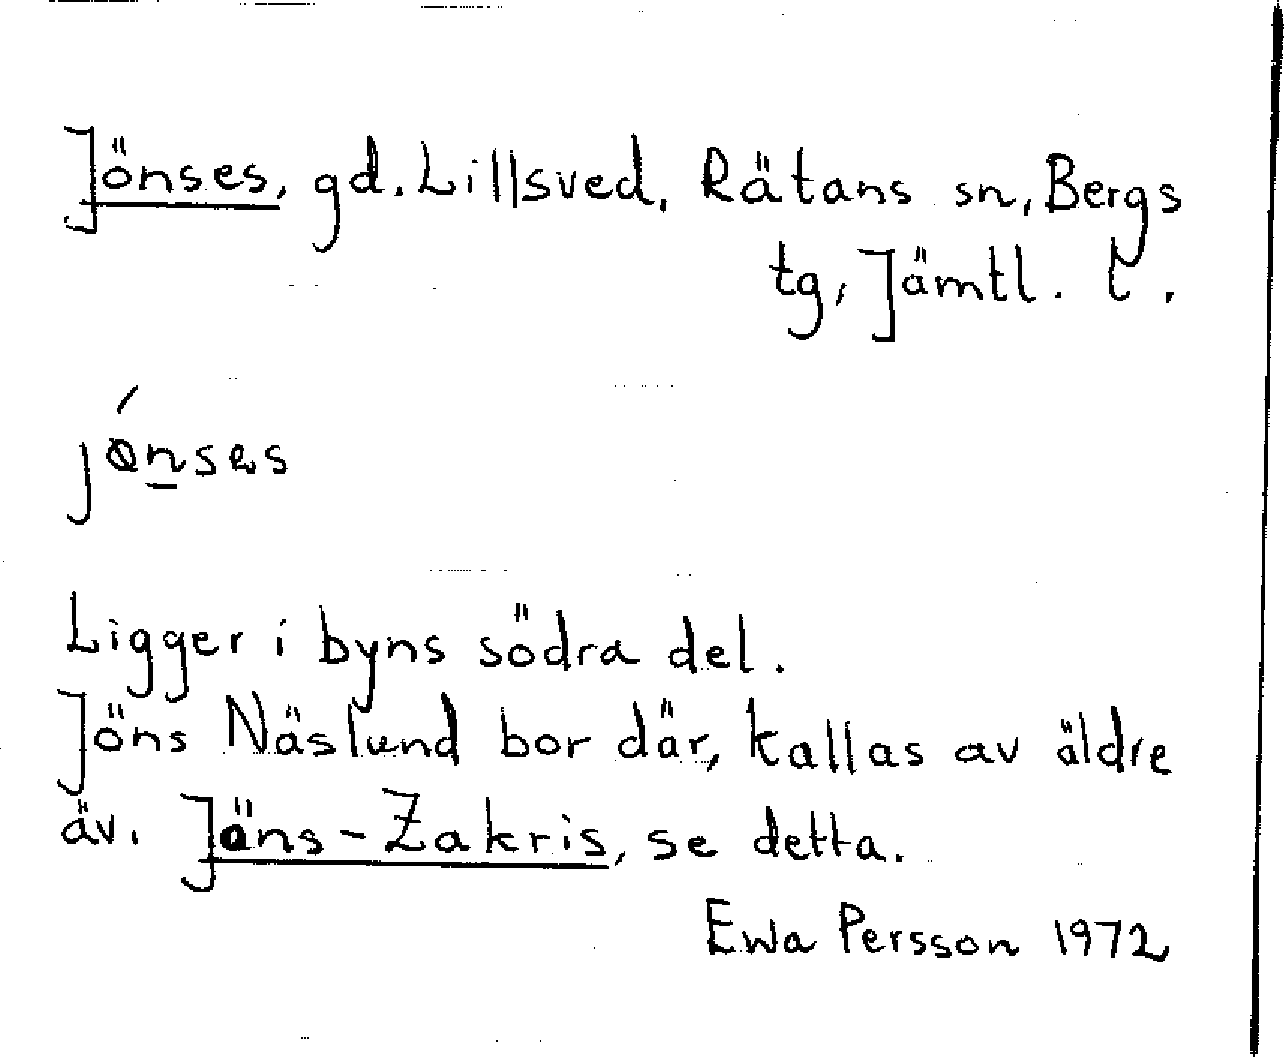 Jönses, gd. Lillsved, Rätans sn, Bergs
tg, Jämtl. l.
jǿnses
Ligger i byns södra del.
Jöns Näslund bor där, kallas av äldre
äv. Jäns-Zakris, se detta.
Ewa Persson 1972